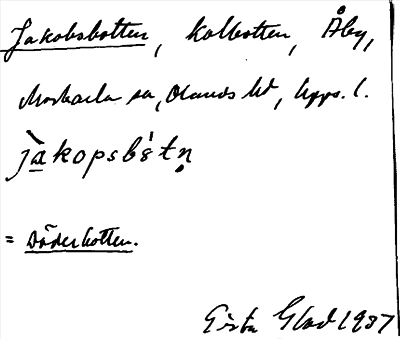 Jakobsbotten, kolbotten, Åby,
Morkarla sn, Olands hd, Upps. l.
jàkopsbòtn̥
= Söderbotten.
Gösta Glad 1937